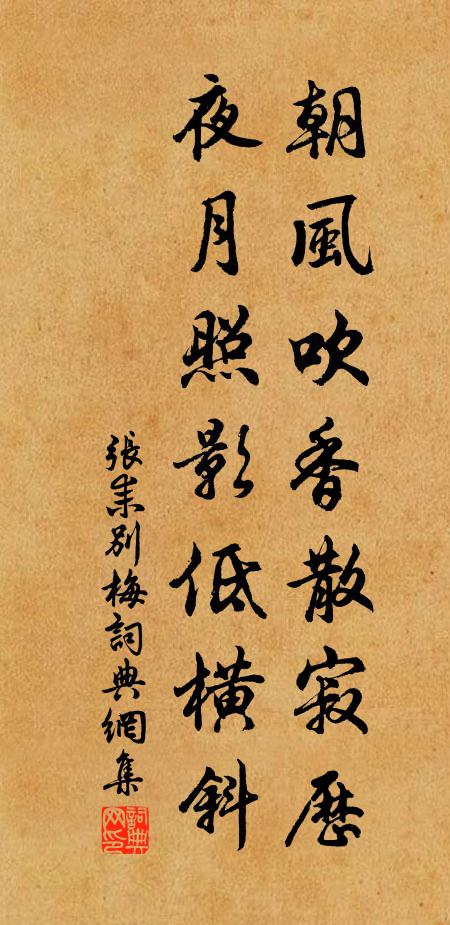 朝風吹香散寂歷
夜月照影低橫斜
張耒別梅詞典網集
詞典網印